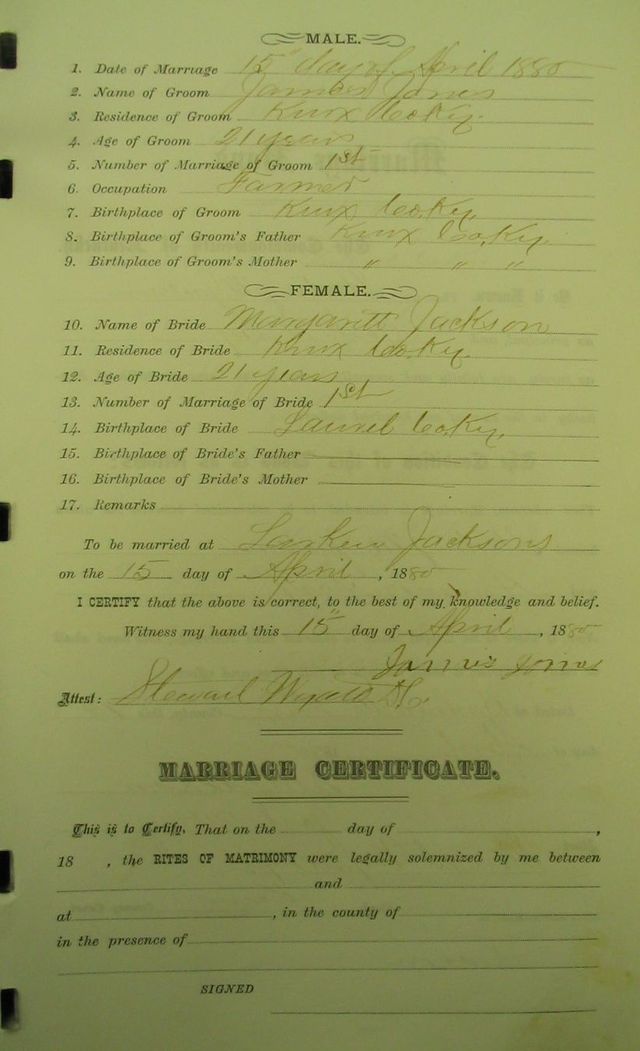 MALE.
1. Date of Marriage 15th day of April 1880
2. Name of Groom James Jones
3. Residence of Groom Knx Co Ky.
4. Age of Groom 21 years
5. Number of Marriage of Groom 1st
6. Occupation Farmer
7. Birthplace of Groom Knx Co. Ky.
8. Birthplace of Groom's Father Knx Co, Ky,
9. Birthplace of Groom's Mother " " "
FEMALE.
10. Name of Bride Margarett Jackson
11. Residence of Bride Knx Co. Ky.
12. Age of Bride 21 years
13. Number of Marriage of Bride 1st
14. Birthplace of Bride Laurel Co Ky,
15. Birthplace of Bride's Father
16. Birthplace of Bride's Mother
17. Remarks
To be married at Larkin Jacksons
on the 15 day of April, 1880
I CERTIFY that the above is correct, to the best of my knowledge and belief.
Witness my hand this 15" day of April, 1880
James Jones
Attest: Steward
MARRIAGE CERTIFICATE.
This is to Certify, That on the day of ,
18 , the RITES OF MATRIMONY were legally solemnized by me between
and
at , in the county of
in the presence of
SIGNED